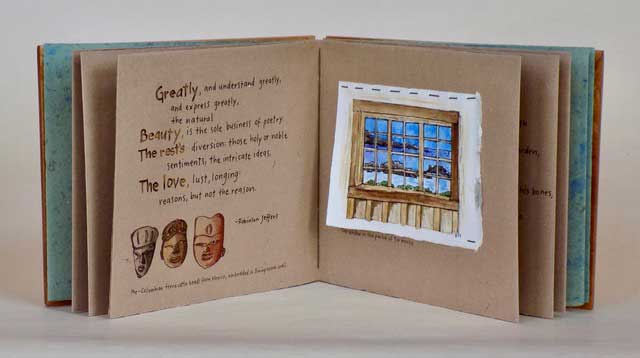 Greatly, and understand greatly,
and express greatly,
the natural
Beauty, is the sole business of poetry
The rest's diversion: those holy or noble
sentiments, the intricate ideas,
The love, lust, longing:
reasons, but not the reason.
-Robinson Jeffers
Pre-Columbian terra cotta heads from Mexico, embedded in living room wall.
The window in the
his bones,